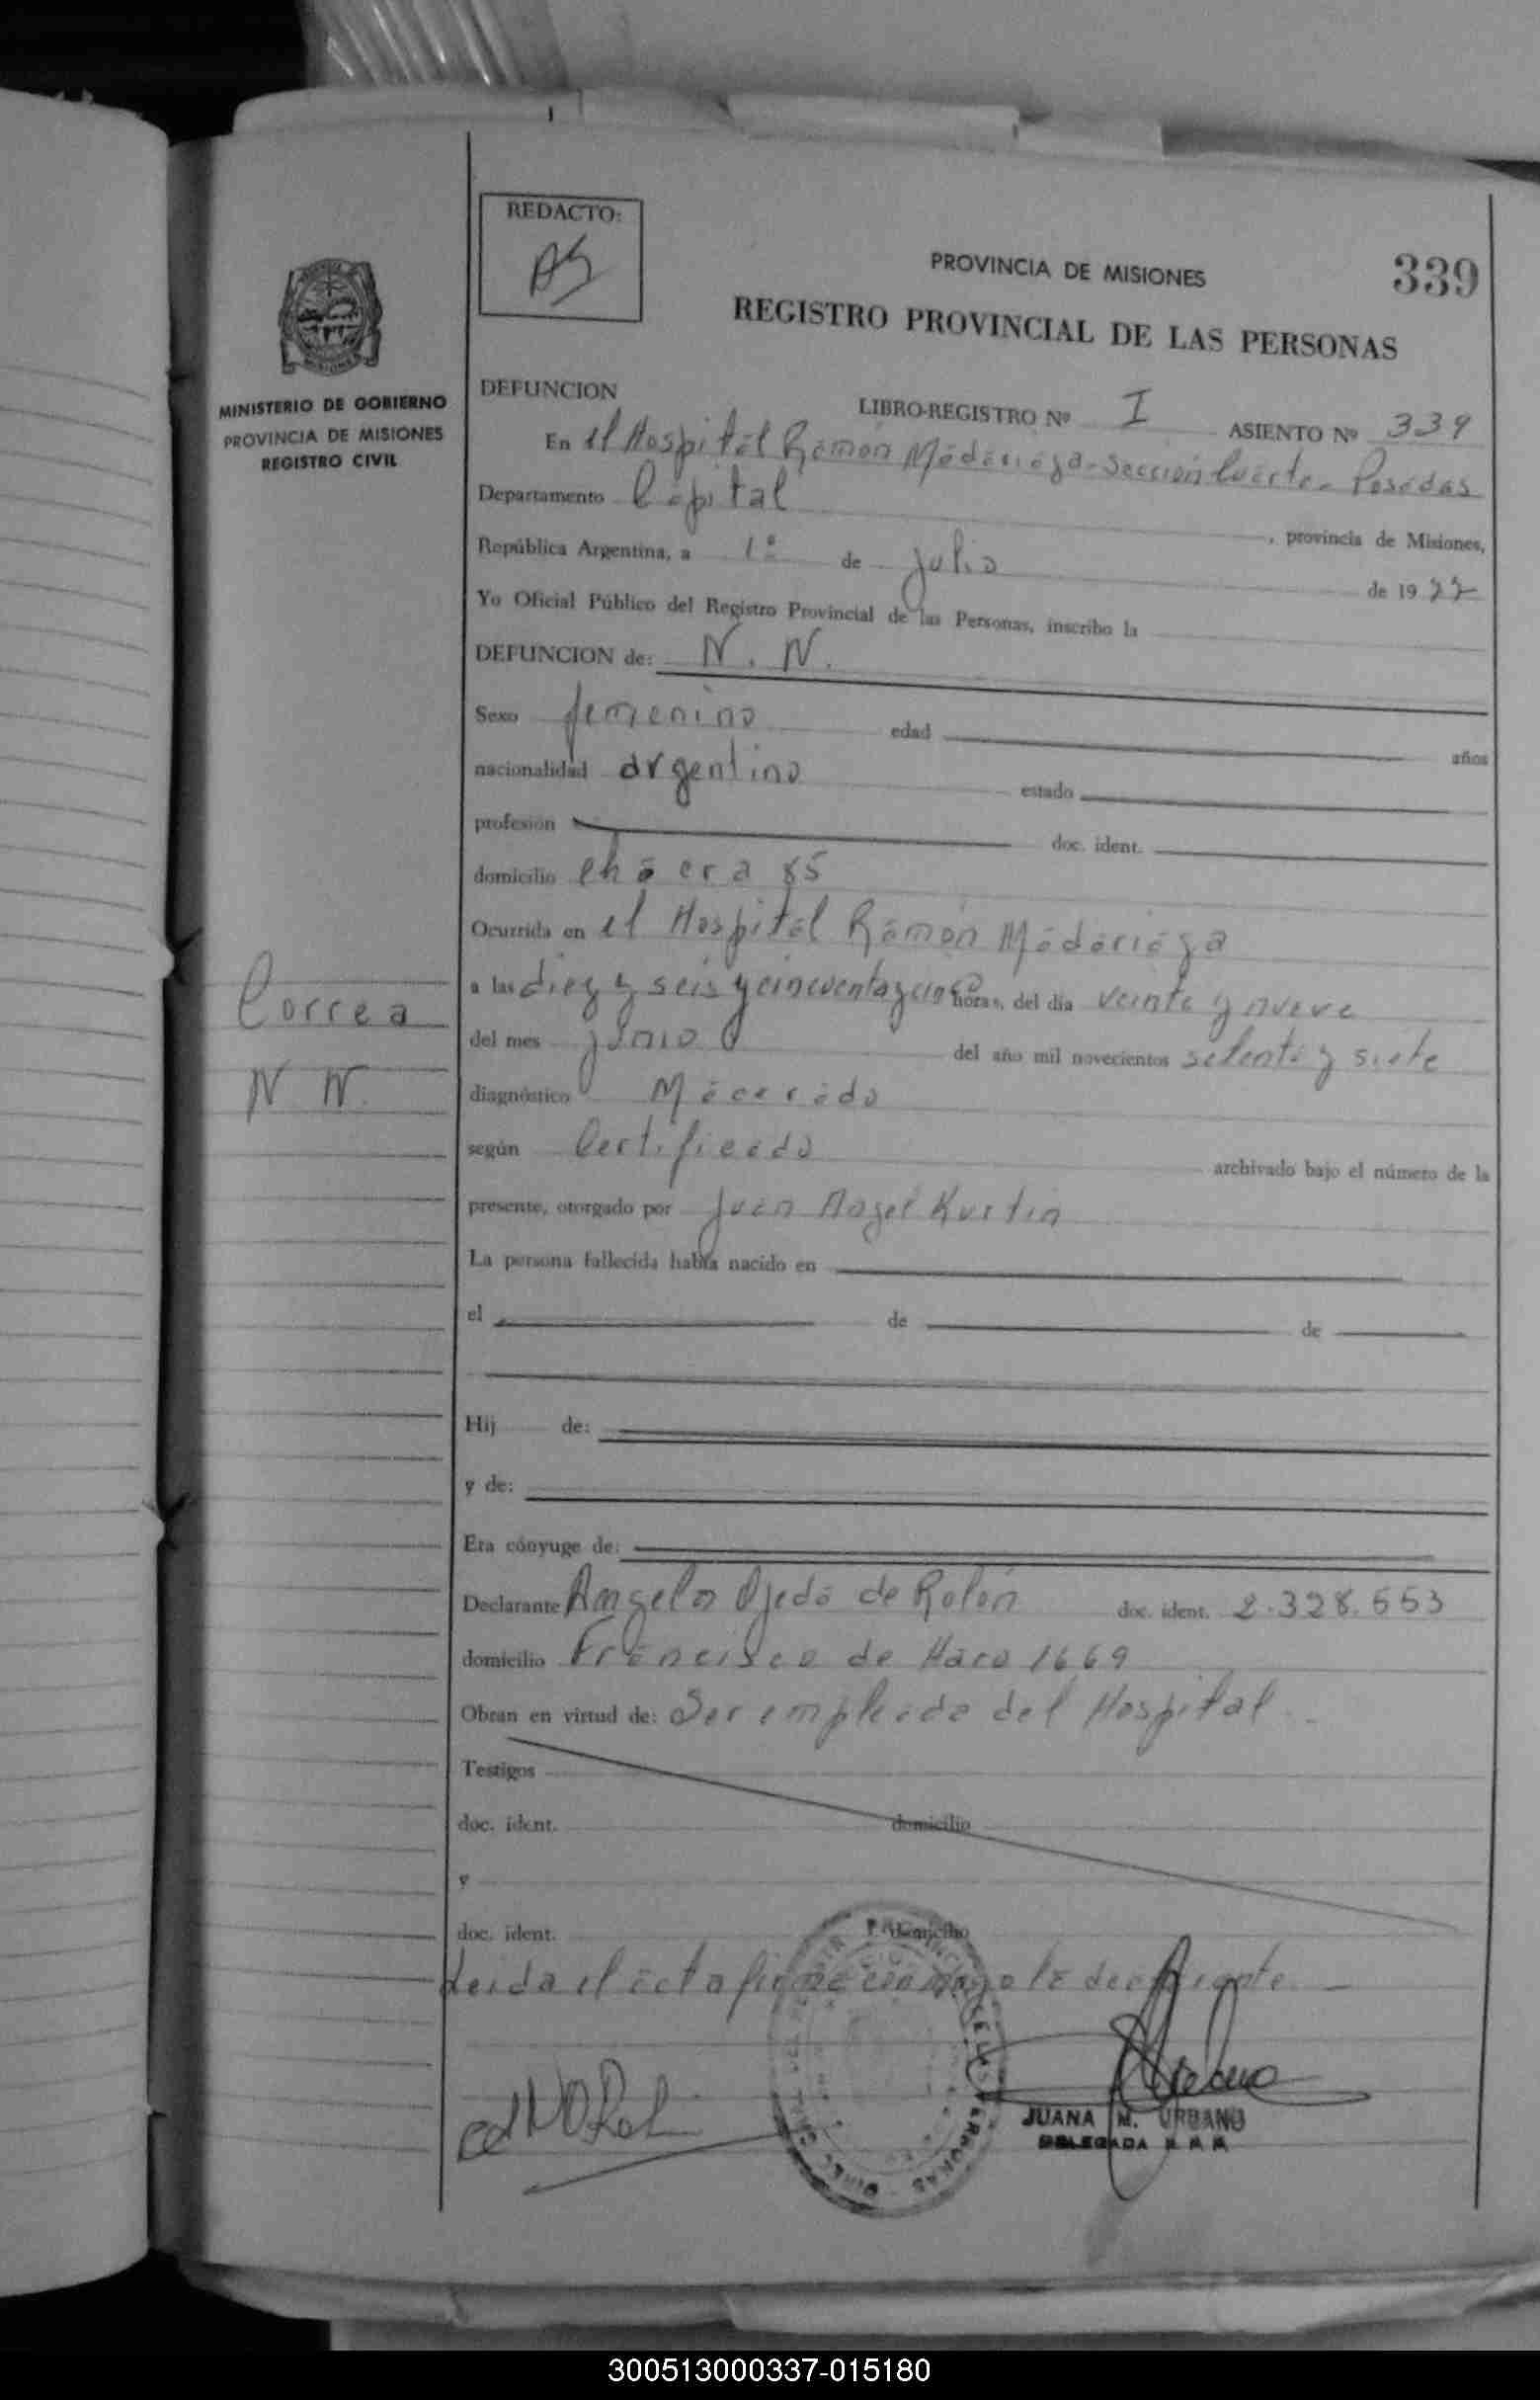 REDACTO:
AS
PROVINCIA DE MISIONES
339
REGISTRO PROVINCIAL DE LAS PERSONAS
MINISTERIO DE GOBIERNO
PROVINCIA DE MISIONES
REGISTRO CIVIL
DEFUNCION
LIBRO-REGISTRO Nº I ASIENTO Nº 339
En el Hospital Ramón Madariaga - Sección Cuarta - Posadas
Departamento Capital, provincia de Misiones,
República Argentina, a 1º de julio de 1977
Yo Oficial Público del Registro Provincial de las Personas, inscribo la
DEFUNCION de: N. N.
Sexo femenino edad años
nacionalidad argentino estado
profesión doc. ident.
domicilio chacra 85
Ocurrida en el Hospital Ramón Madariaga
a las diez y seis y cincuenta y cinco horas, del día veinte y nueve
Correa
del mes junio del año mil novecientos setenta y siete
N N.
diagnóstico Macerado
según Certificado archivado bajo el número de la
presente, otorgado por Juan Angel Kurtin
La persona fallecida había nacido en
el de de
Hij de:
y de:
Era cónyuge de:
Declarante Angela Ojeda de Rolón doc. ident. 2.328.553
domicilio Francisco de Haro 1669
Obran en virtud de: Ser empleada del Hospital
Testigos
doc. ident. domicilio
y
doc. ident. domicilio
Leida el acta firma conmigo la declarante. -
JUANA M. URBANO
DELEGADA
300513000337-015180